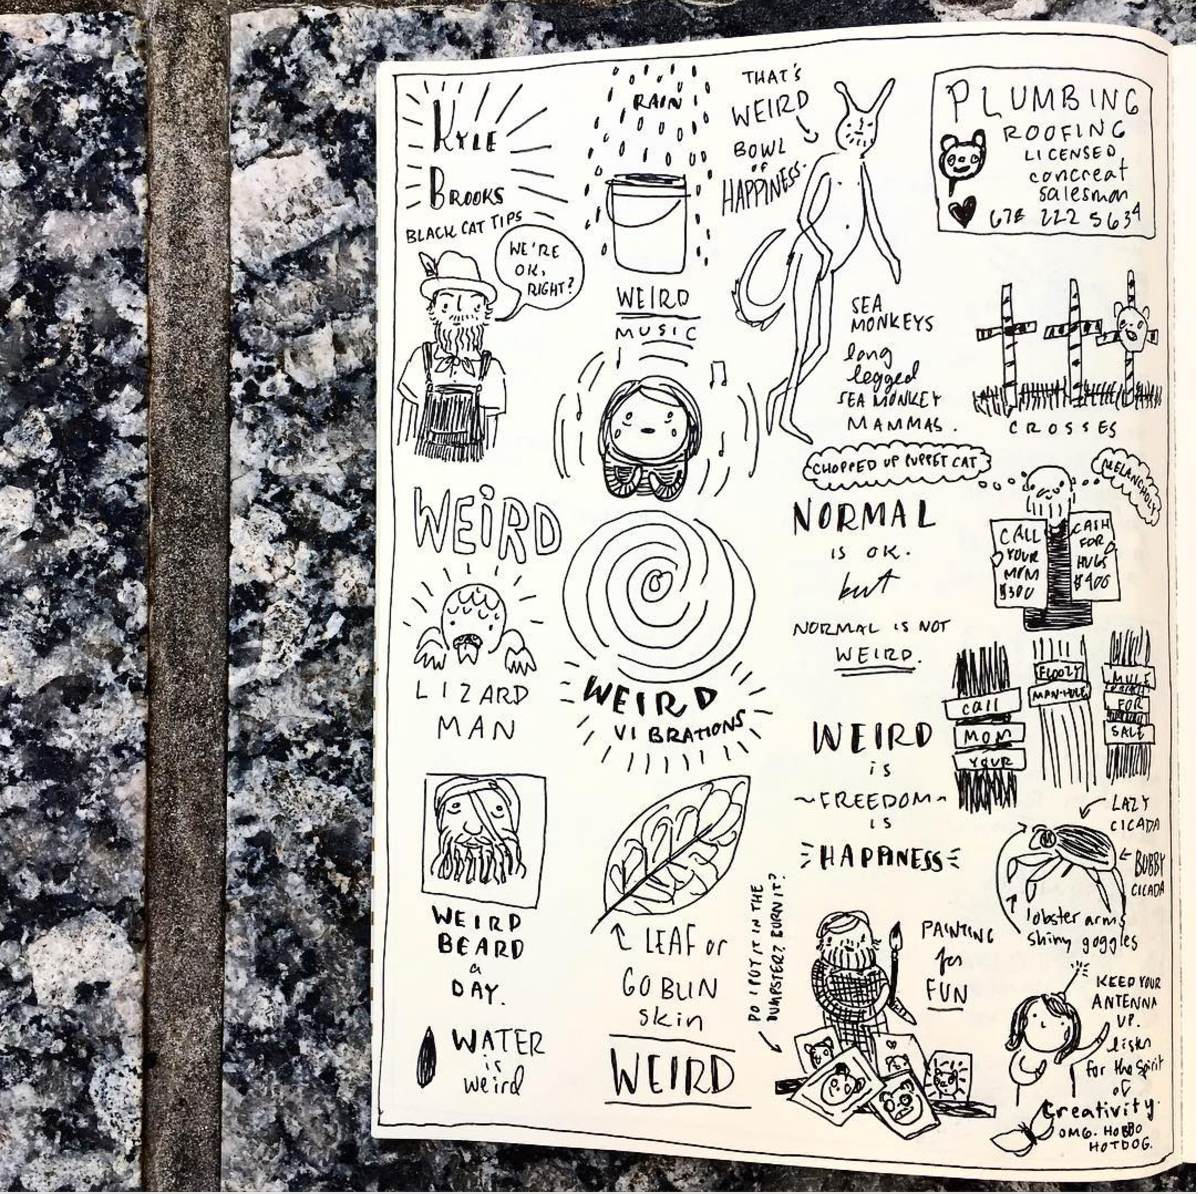 KYLE
BROOKS
BLACK CAT TIPS
WE'RE
OK,
RIGHT?
RAIN
WEIRD
MUSIC
THAT'S
WEIRD
BOWL
OF
HAPPINESS.
PLUMBING
ROOFING
LICENSED
concreat
salesman
678 222 5634
SEA
MONKEYS
long
legged
SEA MONKEY
MAMMAS.
CROSSES
WEIRD
LIZARD
MAN
WEIRD
VIBRATIONS
CHOPPED UP PUPPET CAT
MELANCHOLY
NORMAL
IS OK.
but
NORMAL IS NOT
WEIRD.
CALL
YOUR
MOM
$300
CASH
FOR
HUGS
$400
call
MOM
YOUR
FLOOZY
MAN-HOLE
MULE
FOR
SALE
WEIRD
is
~FREEDOM~
IS
HAPPINESS
WEIRD
BEARD
a
DAY.
LEAF or
GOBLIN
skin
WEIRD
WATER
is
weird
LAZY
CICADA
BUBBY
CICADA
lobster arms
shiny goggles
DO I PUT IT IN THE
DUMPSTER? BURN IT?
PAINTING
for
FUN
KEEP YOUR
ANTENNA
UP.
listen
for the Spirit
of
Creativity.
OMG. HOBBO
HOTDOG.